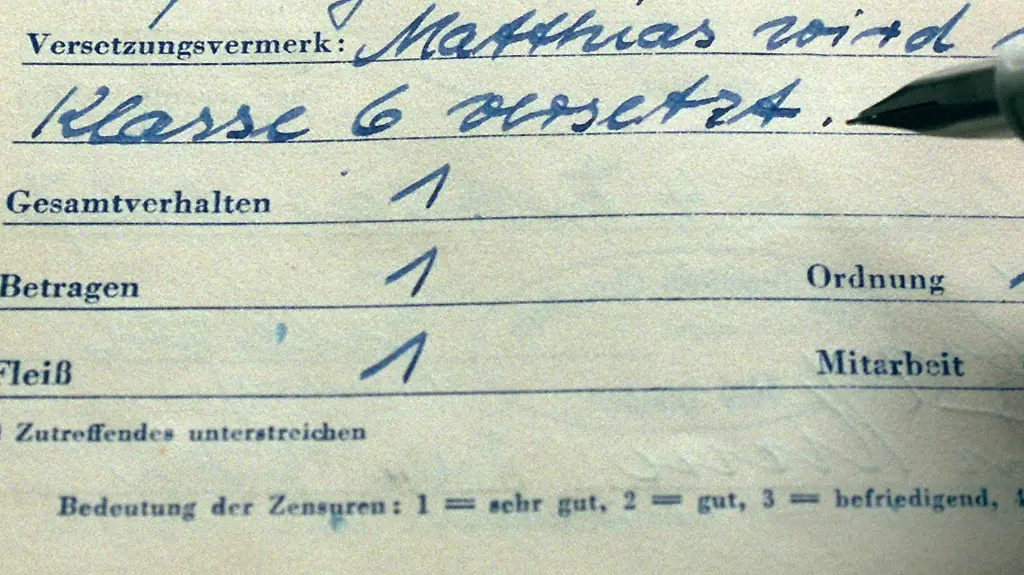 Versetzungsvermerk: Matthias wird
Klasse 6 versetzt.
Gesamtverhalten 1
Betragen 1 Ordnung
Fleiß 1 Mitarbeit
Zutreffendes unterstreichen
Bedeutung der Zensuren: 1 = sehr gut, 2 = gut, 3 = befriedigend, 4